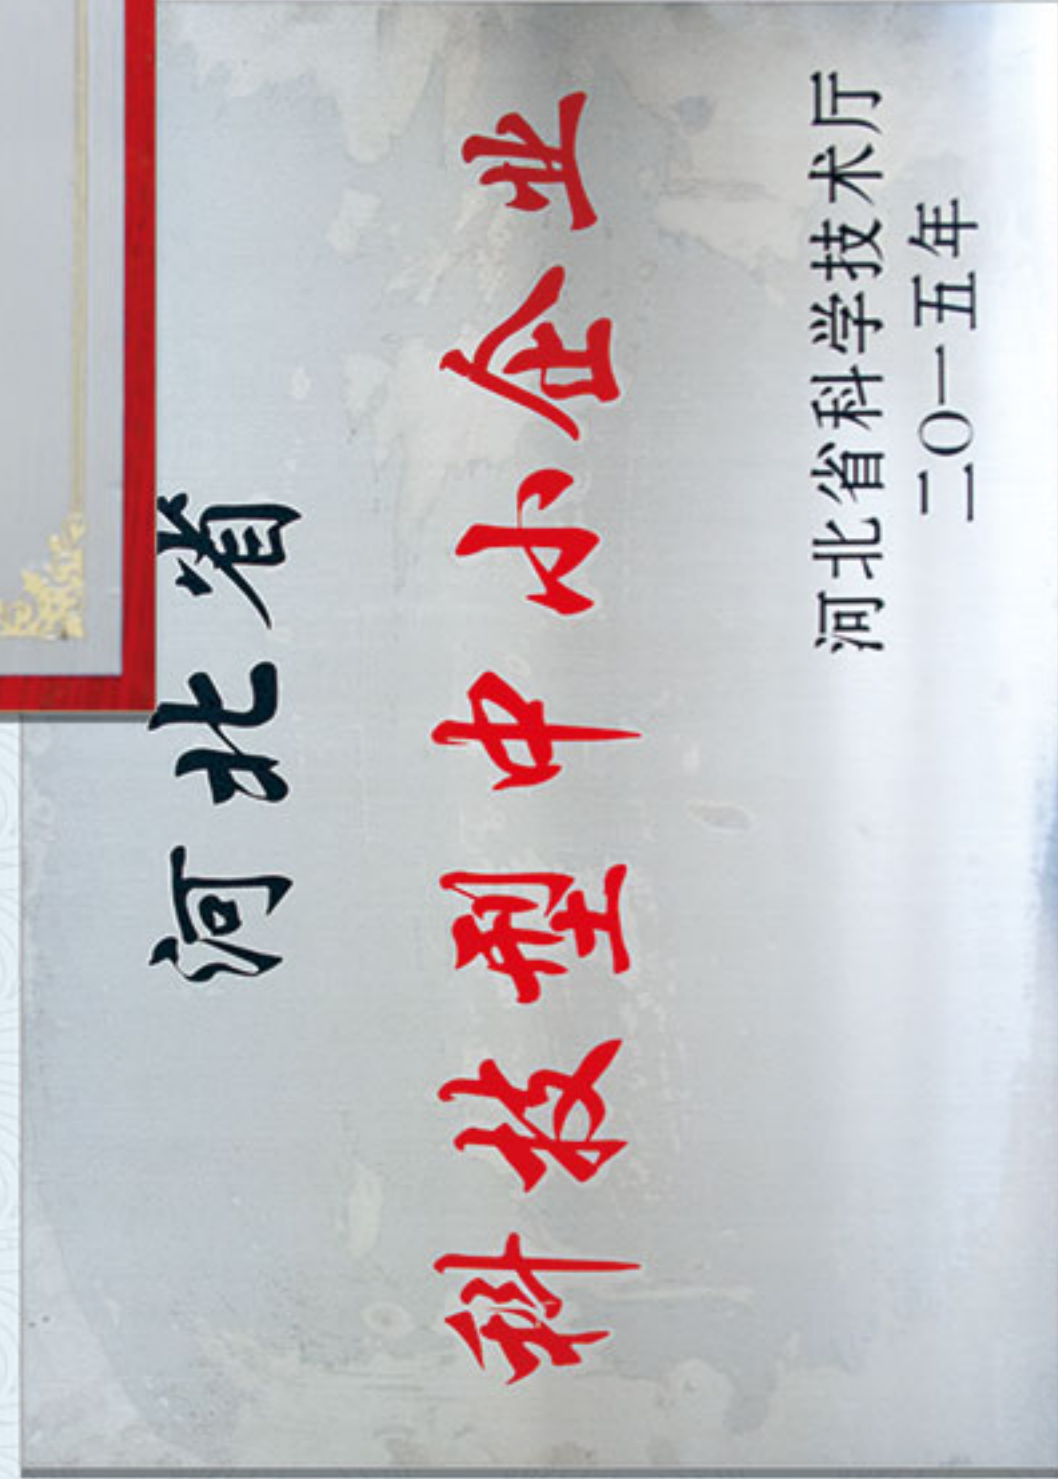 河北省
科技型中小企业
河北省科学技术厅
二〇一五年